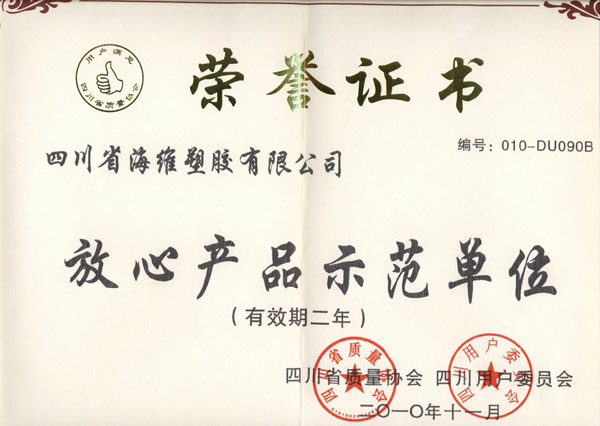 用户满意
四川省质量协会
荣誉证书
编号：010-DU090B
四川省海维塑胶有限公司
放心产品示范单位
（有效期二年）
四川省质量协会 四川用户委员会
二〇一〇年十一月
四川省质量协会
四川用户委员会